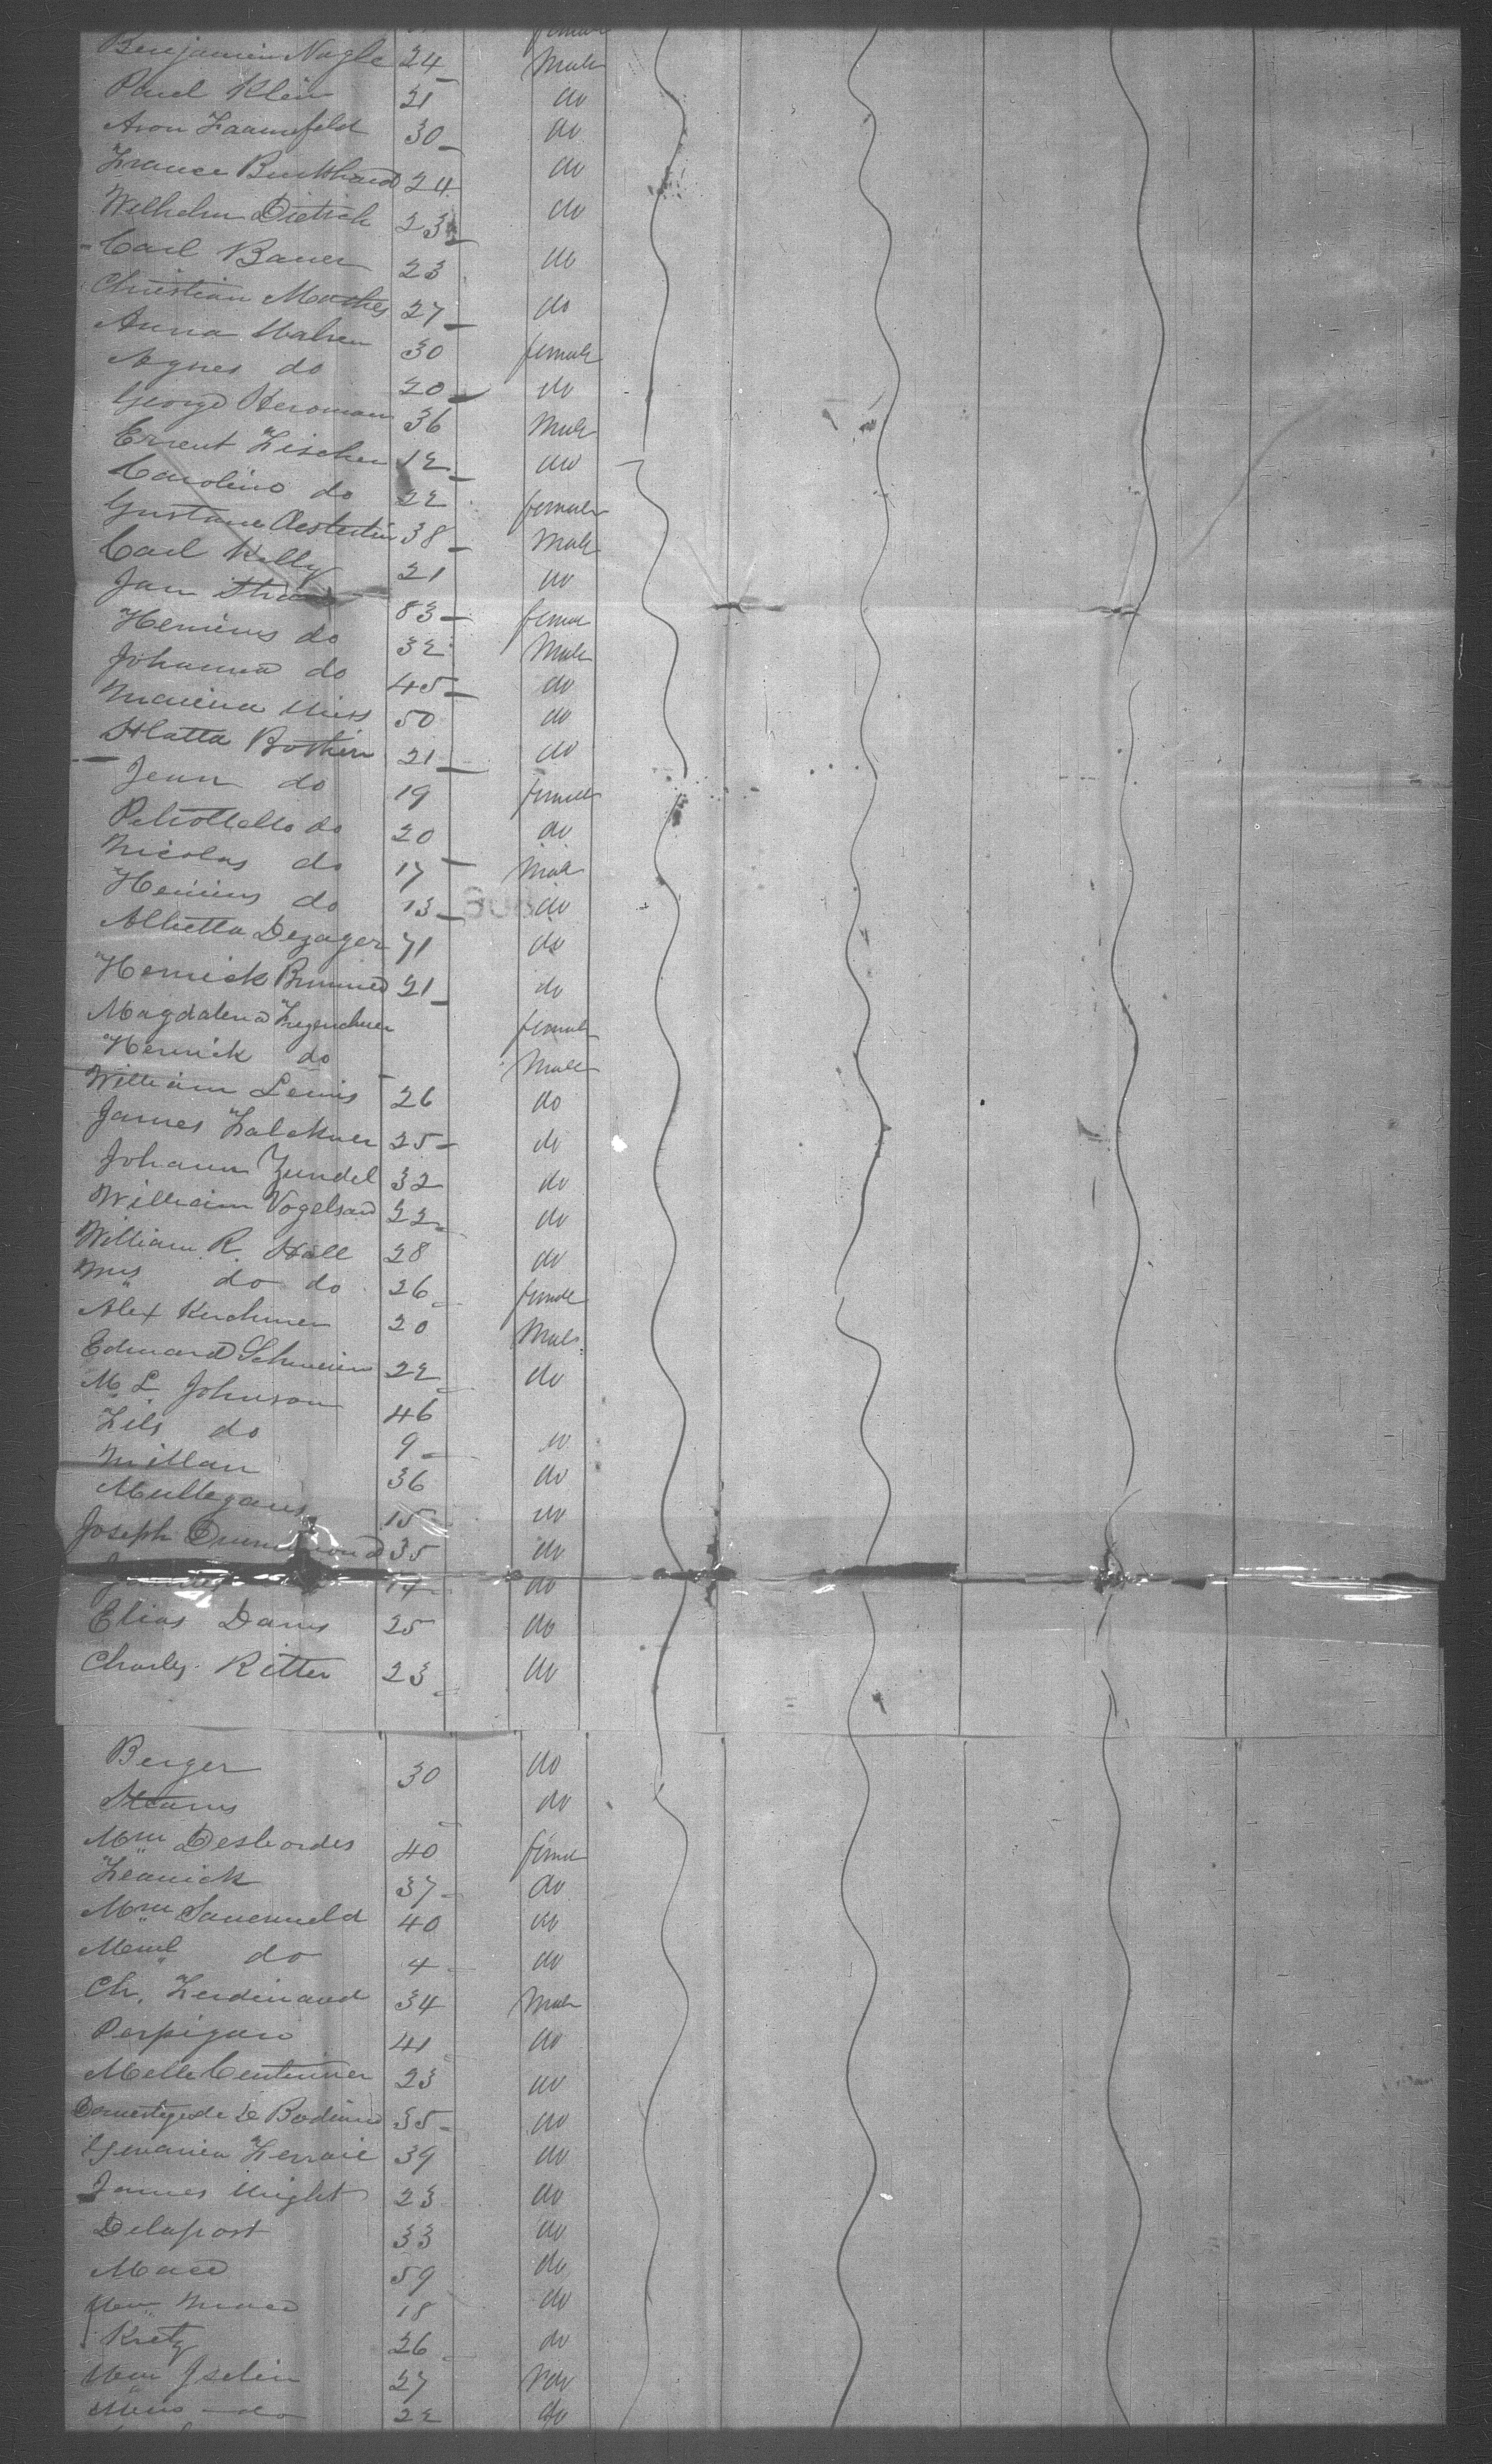 female
Benjamin Nagle 24 Male
Paul Klein 21 do
Aron 30 do
France Burkhard 24 do
Wilhelm Dietrich 23 do
Carl Bauer 23 do
Christian Mathes 27 do
Anna Walsen 30 female
Agnes do 20 do
George Heroman 36 Male
Ernent Fischer 12 do
Carolino do 22 female
Gustave Oesterlin 38 Male
Carl Kelly 21 do
Jan 83 female
Henieus do 32 Male
Johanna do 45 do
50 do
Hlatta Bothin 21 do
Jenn do 19 female
do 20 do
Nicolas do 17 Male
Henieus do 13 do
Albetta Dezager 71 do
Hernick 21 do
Magdalena female
Hernick do Male
William Lewis 26 do
James Falckner 25 do
Johann Zundel 32 do
William Vogelsand 22 do
William R. Hall 28 do
Mrs do do 26 female
Alex Kirchner 20 Male
Edward 22 do
M. L. Johnson 46
do 9 do
Millan 36 do
Mullegans 15 do
Joseph Drummond 35 do
14 do
Elias Davis 25 do
Charles Ritter 23 do
Berger 30 do
Stearns do
Mme Desbordes 40 female
37 do
Mme Sauerweld 40 do
do 4 do
Ch. Ferdinand 34 Male
Perpignan 41 do
Melle 23 do
de 35 do
39 do
James Wright 23 do
Delaport 33 do
Maed 59 do
18 do
Kretz 26 do
Iselin 27 do
do 22 do